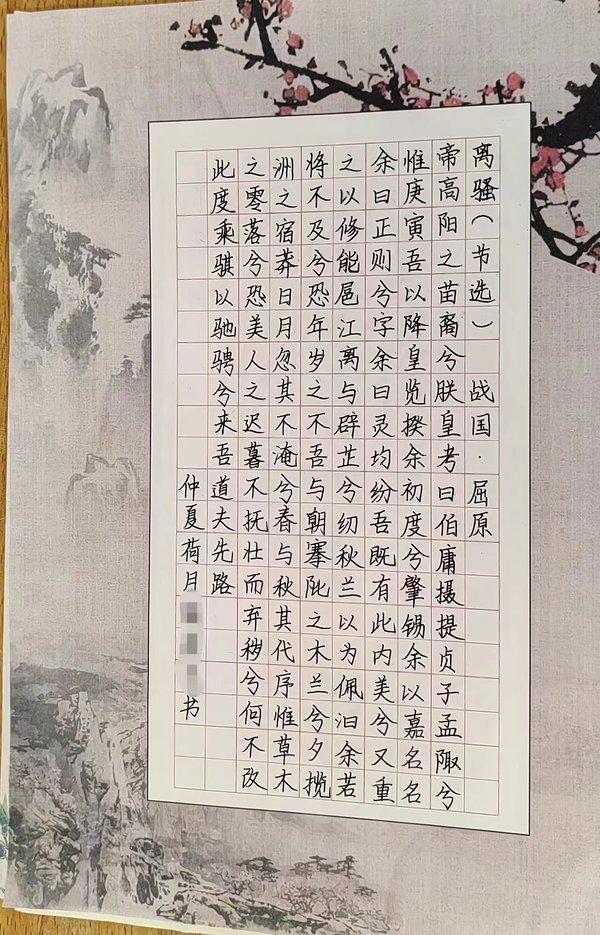 离骚（节选） 战国·屈原
帝高阳之苗裔兮朕皇考曰伯庸摄提贞于孟陬兮
惟庚寅吾以降皇览揆余初度兮肇锡余以嘉名名
余曰正则兮字余曰灵均纷吾既有此内美兮又重
之以修能扈江离与辟芷兮纫秋兰以为佩汩余若
将不及兮恐年岁之不吾与朝搴阰之木兰兮夕揽
洲之宿莽日月忽其不淹兮春与秋其代序惟草木
之零落兮恐美人之迟暮不抚壮而弃秽兮何不改
此度乘骐以驰骋兮来吾道夫先路
仲夏荷月 书